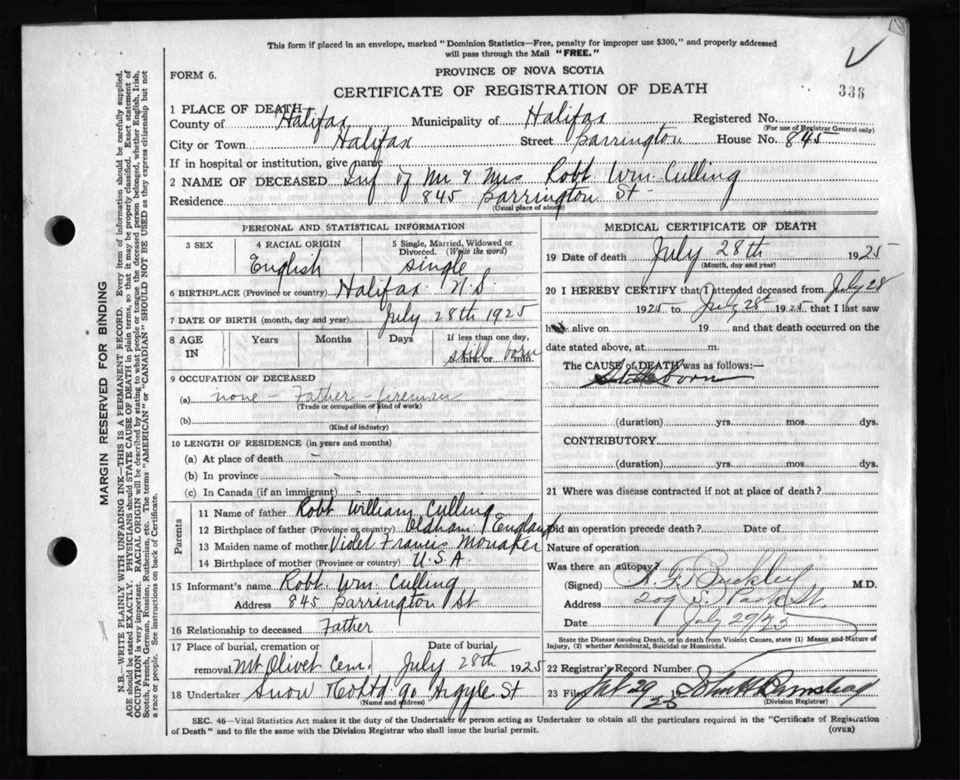 This form if placed in an envelope, marked "Dominion Statistics—Free, penalty for improper use $300," and properly addressed
will pass through the Mail "FREE."
FORM 6.
PROVINCE OF NOVA SCOTIA
338
CERTIFICATE OF REGISTRATION OF DEATH
1 PLACE OF DEATH
County of Halifax Municipality of Halifax Registered No.
(For use of Registrar General only)
City or Town Halifax Street Barrington House No. 845
If in hospital or institution, give name
2 NAME OF DECEASED Inf of Mr & Mrs Robt Wm. Culling
Residence 845 Barrington St
(Usual place of abode)
PERSONAL AND STATISTICAL INFORMATION
3 SEX
4 RACIAL ORIGIN
English
5 Single, Married, Widowed or
Divorced. (Write the word)
single
6 BIRTHPLACE (Province or country) Halifax N.S.
7 DATE OF BIRTH (month, day and year) July 28th 1925
8 AGE
IN
Years
Months
Days
If less than one day,
still born
hrs. or min.
9 OCCUPATION OF DECEASED
(a) none - Father - fireman
(Trade or occupation or kind of work)
(b)
(Kind of industry)
10 LENGTH OF RESIDENCE (in years and months)
(a) At place of death
(b) In province
(c) In Canada (if an immigrant)
Parents
11 Name of father Robt William Culling
12 Birthplace of father (Province or country) Oldham England
13 Maiden name of mother Violet Francis
14 Birthplace of mother (Province or country) U.S.A.
15 Informant's name Robt. Wm. Culling
Address 845 Barrington St
16 Relationship to deceased Father
17 Place of burial, cremation or Date of burial
removal Mt Olivet Cem. July 28th 1925
18 Undertaker Snow & Co Ltd 90 Argyle St
(Name and address)
MEDICAL CERTIFICATE OF DEATH
19 Date of death July 28th 1925
(Month, day and year)
20 I HEREBY CERTIFY that I attended deceased from July 28
1925 to July 28th 1925 that I last saw
h alive on 19 and that death occurred on the
date stated above, at m.
The CAUSE of DEATH was as follows:—
Stillborn
(duration) yrs. mos. dys.
CONTRIBUTORY
(duration) yrs. mos. dys.
21 Where was disease contracted if not at place of death?
Did an operation precede death? Date of
Nature of operation
Was there an autopsy?
(Signed) Buckley M.D.
Address 209 S. Park St.
Date July 29/25
State the Disease causing Death, or in death from Violent Causes, state (1) Means and Nature of
Injury, (2) whether Accidental, Suicidal or Homicidal.
22 Registrar's Record Number
23 Filed 29 25 John
(Division Registrar)
SEC. 46—Vital Statistics Act makes it the duty of the Undertaker or person acting as Undertaker to obtain all the particulars required in the "Certificate of Registration
of Death" and to file the same with the Division Registrar who shall issue the burial permit.
(OVER)
MARGIN RESERVED FOR BINDING
N.B.—WRITE PLAINLY WITH UNFADING INK—THIS IS A PERMANENT RECORD. Every item of information should be carefully supplied.
AGE should be stated EXACTLY. PHYSICIANS should STATE CAUSE OF DEATH in plain terms, so that it may be properly classified. Exact statement of
OCCUPATION is very important. RACIAL ORIGIN will be described by stating to what people or tongue the deceased person belonged, whether English, Irish,
Scotch, French, German, Russian, Ruthenian, etc. The terms "AMERICAN" or "CANADIAN" SHOULD NOT BE USED as they express citizenship but not
a race or people. See instructions on back of Certificate.